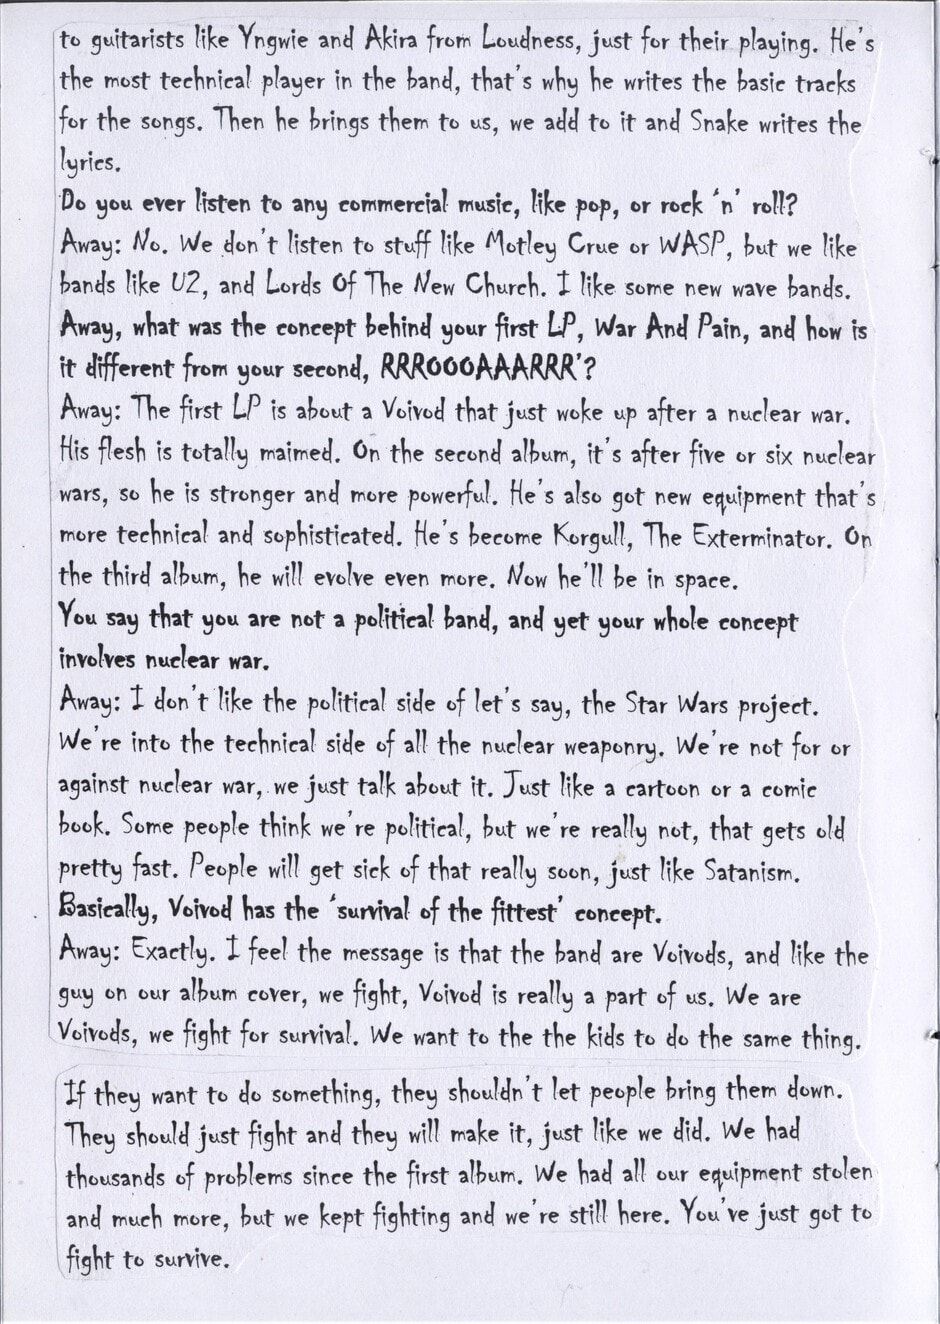 to guitarists like Yngwie and Akira from Loudness, just for their playing. He's
the most technical player in the band, that's why he writes the basic tracks
for the songs. Then he brings them to us, we add to it and Snake writes the
lyrics.
Do you ever listen to any commercial music, like pop, or rock 'n' roll?
Away: No. We don't listen to stuff like Motley Crue or WASP, but we like
bands like U2, and Lords Of The New Church. I like some new wave bands.
Away, what was the concept behind your first LP, War And Pain, and how is
it different from your second, RRROOOAAARRR'?
Away: The first LP is about a Voivod that just woke up after a nuclear war.
His flesh is totally maimed. On the second album, it's after five or six nuclear
wars, so he is stronger and more powerful. He's also got new equipment that's
more technical and sophisticated. He's become Korgull, The Exterminator. On
the third album, he will evolve even more. Now he'll be in space.
You say that you are not a political band, and yet your whole concept
involves nuclear war.
Away: I don't like the political side of let's say, the Star Wars project.
We're into the technical side of all the nuclear weaponry. We're not for or
against nuclear war, we just talk about it. Just like a cartoon or a comic
book. Some people think we're political, but we're really not, that gets old
pretty fast. People will get sick of that really soon, just like Satanism.
Basically, Voivod has the 'survival of the fittest' concept.
Away: Exactly. I feel the message is that the band are Voivods, and like the
guy on our album cover, we fight, Voivod is really a part of us. We are
Voivods, we fight for survival. We want to the the kids to do the same thing.
If they want to do something, they shouldn't let people bring them down.
They should just fight and they will make it, just like we did. We had
thousands of problems since the first album. We had all our equipment stolen
and much more, but we kept fighting and we're still here. You've just got to
fight to survive.